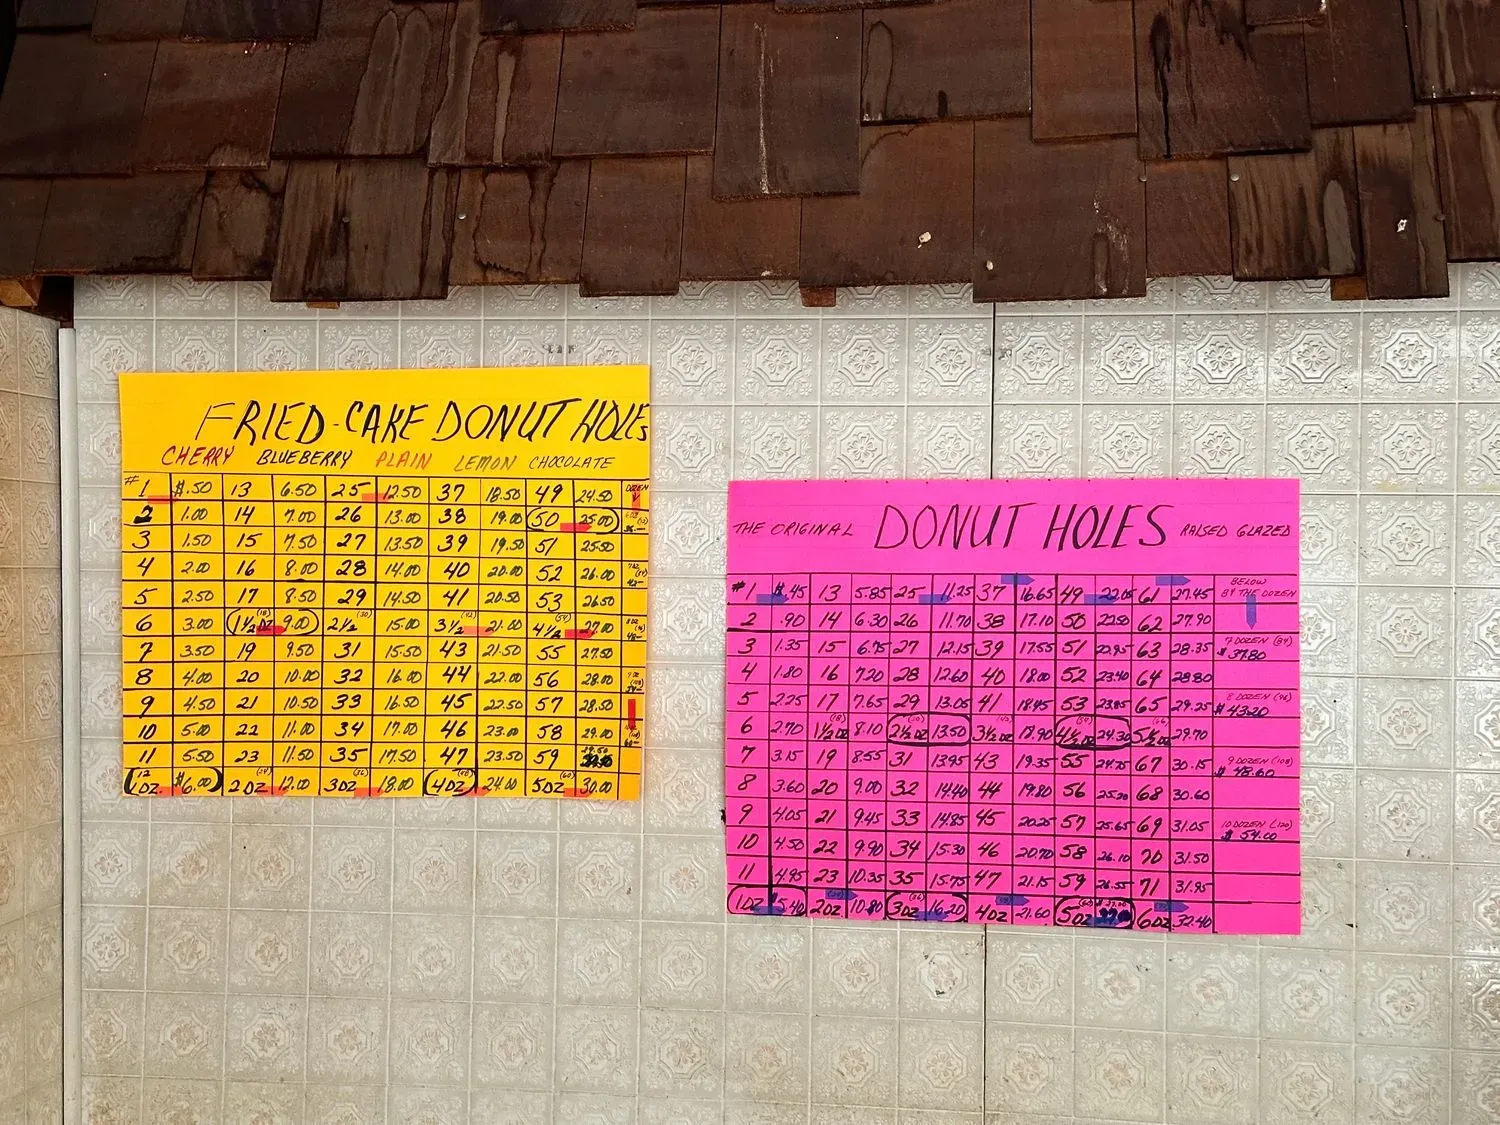 FRIED-CAKE DONUT HOLES
CHERRY BLUEBERRY PLAIN LEMON CHOCOLATE
#1 $.50 13 6.50 25 12.50 37 18.50 49 24.50 DOZEN
2 1.00 14 7.00 26 13.00 38 19.00 50 25.00
3 1.50 15 7.50 27 13.50 39 19.50 51 25.50
4 2.00 16 8.00 28 14.00 40 20.00 52 26.00
5 2.50 17 8.50 29 14.50 41 20.50 53 26.50
6 3.00 1½ DZ (18) 9.00 2½ (30) 15.00 3½ (42) 21.00 4½ (54) 27.00
7 3.50 19 9.50 31 15.50 43 21.50 55 27.50
8 4.00 20 10.00 32 16.00 44 22.00 56 28.00
9 4.50 21 10.50 33 16.50 45 22.50 57 28.50
10 5.00 22 11.00 34 17.00 46 23.00 58 29.00
11 5.50 23 11.50 35 17.50 47 23.50 59
12 1DZ. $6.00 2DZ (24) 12.00 3DZ (36) 18.00 4DZ (48) 24.00 5DZ (60) 30.00
THE ORIGINAL DONUT HOLES RAISED GLAZED
#1 $.45 13 5.85 25 11.25 37 16.65 49 22.05 61 27.45 BELOW BY THE DOZEN
2 .90 14 6.30 26 11.70 38 17.10 50 22.50 62 27.90
3 1.35 15 6.75 27 12.15 39 17.55 51 63 28.35 7 DOZEN (84) $37.80
4 1.80 16 7.20 28 12.60 40 18.00 52 23.40 64 28.80
5 2.25 17 7.65 29 13.05 41 18.45 53 23.85 65 29.25 8 DOZEN (96) $43.20
6 2.70 1½ DZ (18) 8.10 2½ DZ (30) 13.50 3½ DZ (42) 18.90 4½ DZ (54) 24.30 5½ DZ (66) 29.70
7 3.15 19 8.55 31 13.95 43 19.35 55 24.75 67 30.15 9 DOZEN (108) $48.60
8 3.60 20 9.00 32 14.40 44 19.80 56 25.20 68 30.60
9 4.05 21 9.45 33 14.85 45 20.25 57 25.65 69 31.05 10 DOZEN (120) $54.00
10 4.50 22 9.90 34 15.30 46 20.70 58 26.10 70 31.50
11 4.95 23 10.35 35 15.75 47 21.15 59 26.55 71 31.95
1DZ $5.40 2DZ (24) 10.80 3DZ (36) 16.20 4DZ 21.60 5DZ (60) $27.00 6DZ 32.40